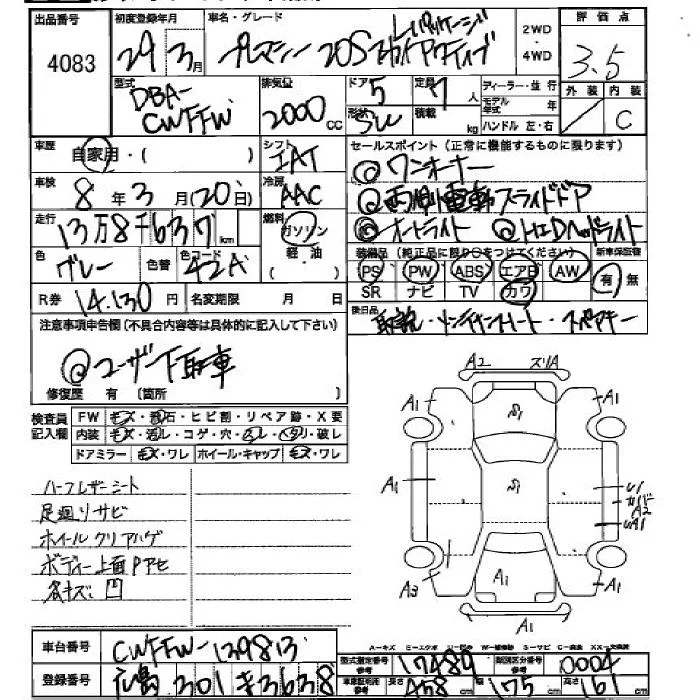 出品番号 初度登録年月 車名・グレード 評価点
4083 29年3月 プレマシー 20Sスカイアクティブ Lパッケージ 2WD ・ 4WD 3.5
型式 排気量 ドア 5 定員 7人 ディーラー・並行 外装 内装
DBA-CWFFW 2000CC 形状 SW 積載 kg モデル年式 年 ハンドル 左・右 C
車歴 自家用・( ) シフト IAT セールスポイント(正常に機能するものに限ります)
◎ワンオーナー
車検 8年3月(20日) 冷房 AAC ◎両側電動スライドドア
走行 13万8千637km 燃料 ガソリン 軽油 ◎オートライト ◎HIDヘッドライト
色 グレー 色替 色コード 42A 装備品(純正品に限り○をつけてください) 新車保証書
PS PW ABS エアB AW 有 無
R券 14,130円 名変期限 月 日 SR ナビ TV カワ
注意事項申告欄(不具合内容等は具体的に記入して下さい) 後日品 取説・メンテナンスノート・スペアキー
◎ユーザー下取車
修復歴 有 (箇所 )
検査員記入欄 FW キズ・飛石・ヒビ割・リペア跡・X要
内装 キズ・汚レ・コゲ・穴・スレ・ヘタリ・破レ
ドアミラー キズ・ワレ ホイール・キャップ キズ・ワレ
A2 スリA
A1 S1 A1
A1 S1 U1
カバー
A2
UA1
A3 A1 A1
A1
ハーフレザーシート
足廻リサビ
ホイールクリアハゲ
ボディー上面Pアセ
各キズ・凹
A-キズ E-エクボ U-凹み W-補修跡 S-サビ C-腐食 XX-交換済
車台番号 CWFFW-129813 型式指定番号 17489 類別区分番号 0004
登録番号 広島 301 ま3638 車庫証明用参考 長さ 458cm 幅 175cm 高さ 161cm